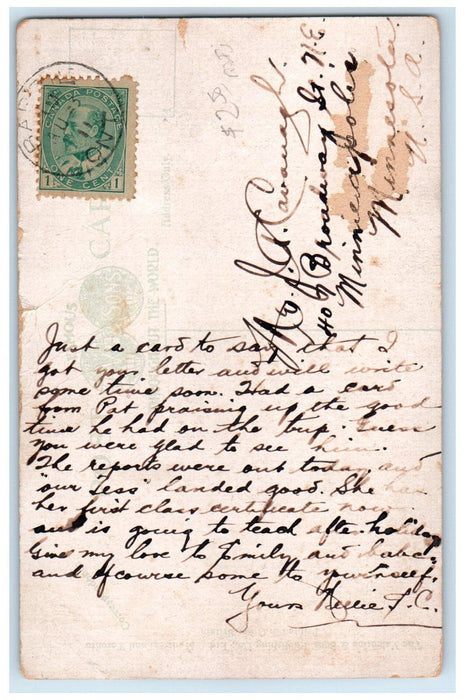 CANADA POSTAGE
1 ONE CENT 1
$2.50
Mrs J. A. Cavanagh
409 Broadway St. N.E.
Minneapolis
Minnesota
U.S.A.
CAR
AROUND THE WORLD.
FAMOUS
Just a card to say that I
got your letter and will write
some time soon. Had a card
from Pat praising up the good
time he had on the trip. Guess
you were glad to see him.
The reports were out today and
"our Tess" landed good. She has
her first class certificate now
and is going to teach after holidays
Give my love to Emily and babe
and ofcourse some to yourself.
Yours Nellie F. C.
The Valentine & Sons Publishing Co., Ltd., Montreal and Toronto